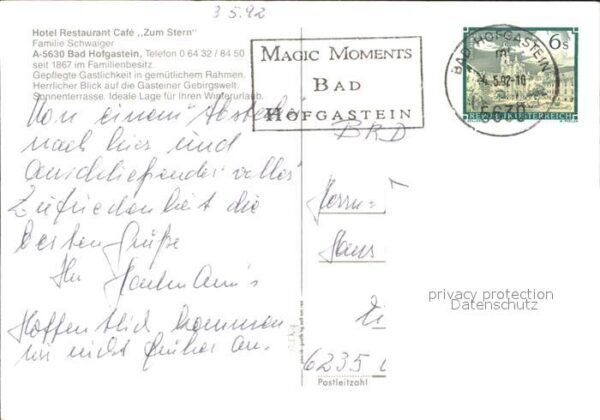 3.5.92
Hotel Restaurant Café „Zum Stern"
Familie Schwaiger
A-5630 Bad Hofgastein, Telefon 0 64 32 / 84 50
seit 1867 im Familienbesitz.
Gepflegte Gastlichkeit in gemütlichem Rahmen.
Herrlicher Blick auf die Gasteiner Gebirgswelt.
Sonnenterrasse. Ideale Lage für Ihren Winterurlaub.
MAGIC MOMENTS
BAD
HOFGASTEIN
BAD HOFGASTEIN
5.92-10
5630
6 S
REPUBLIK ÖSTERREICH
BRD
Von einem
nach hier und
anschließender voller
Zufriedenheit die
besten Grüße
Ihr
Hoffentlich kommen
wir nicht früher an.
Herrn
Hans
6235
Postleitzahl
privacy protection
Datenschutz